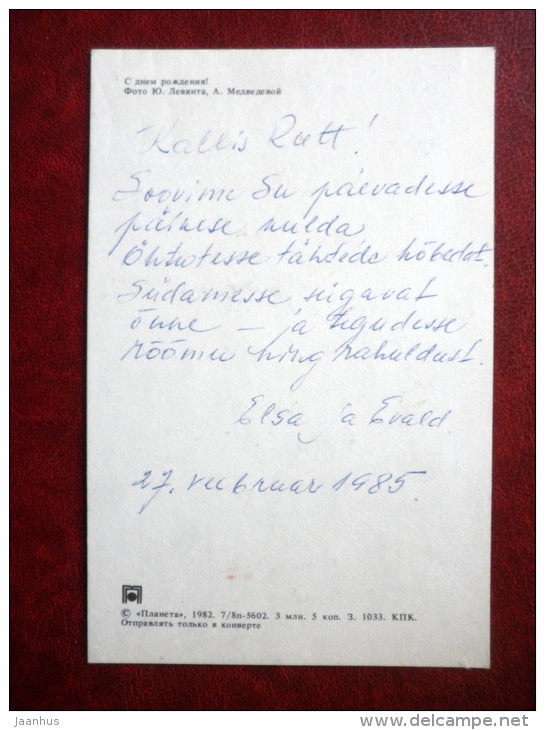 С днем рождения!
Фото Ю. Левянта, А. Медведевой
Kallis Rutt!
Soovime Su päevadesse
päikese kulda
Õhtutesse tähtede hõbedat.
Südamesse sügavat
õnne — ja tegudesse
rõõmu ning rahuldust.
Elsa ja Evald.
27. veebruar 1985.
© «Планета», 1982. 7/8п-5602. 3 млн. 5 коп. З. 1033. КПК.
Отправлять только в конверте
jaanhus
http://www.delcampe.net